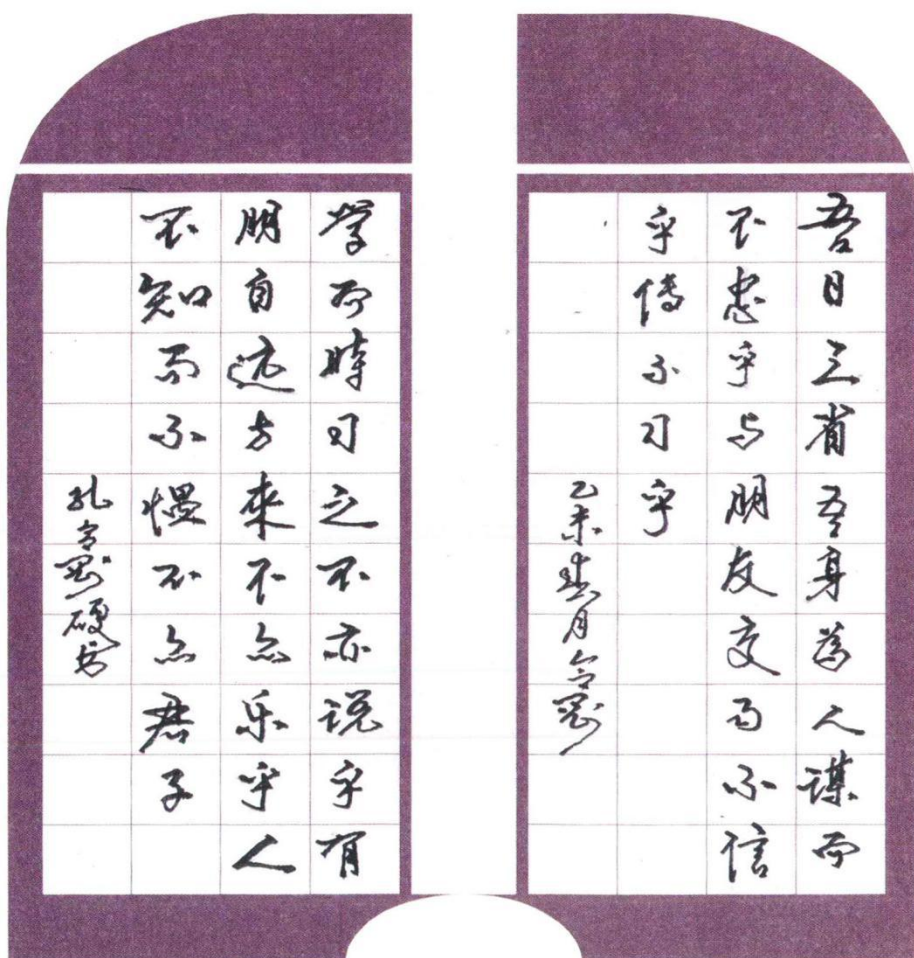 吾日三省吾身为人谋而
不忠乎与朋友交而不信
乎传不习乎
乙未春月令
学而时习之不亦说乎有
朋自远方来不亦乐乎人
不知而不愠不亦君子
孔令硬书